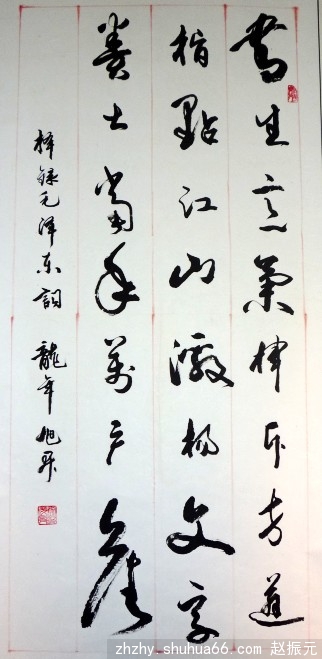 書生意氣揮斥方遒
指點江山激揚文字
糞土當年萬户侯
择録毛泽东詞 龍年
zhzhy.shuhua66.com 赵振元